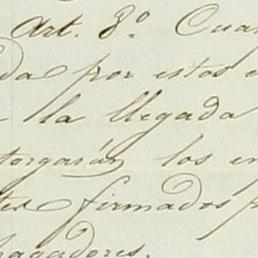 Art. 8.º Cua
da por estos e
la llegada
torgarán los en
tes firmados p
pagadores.